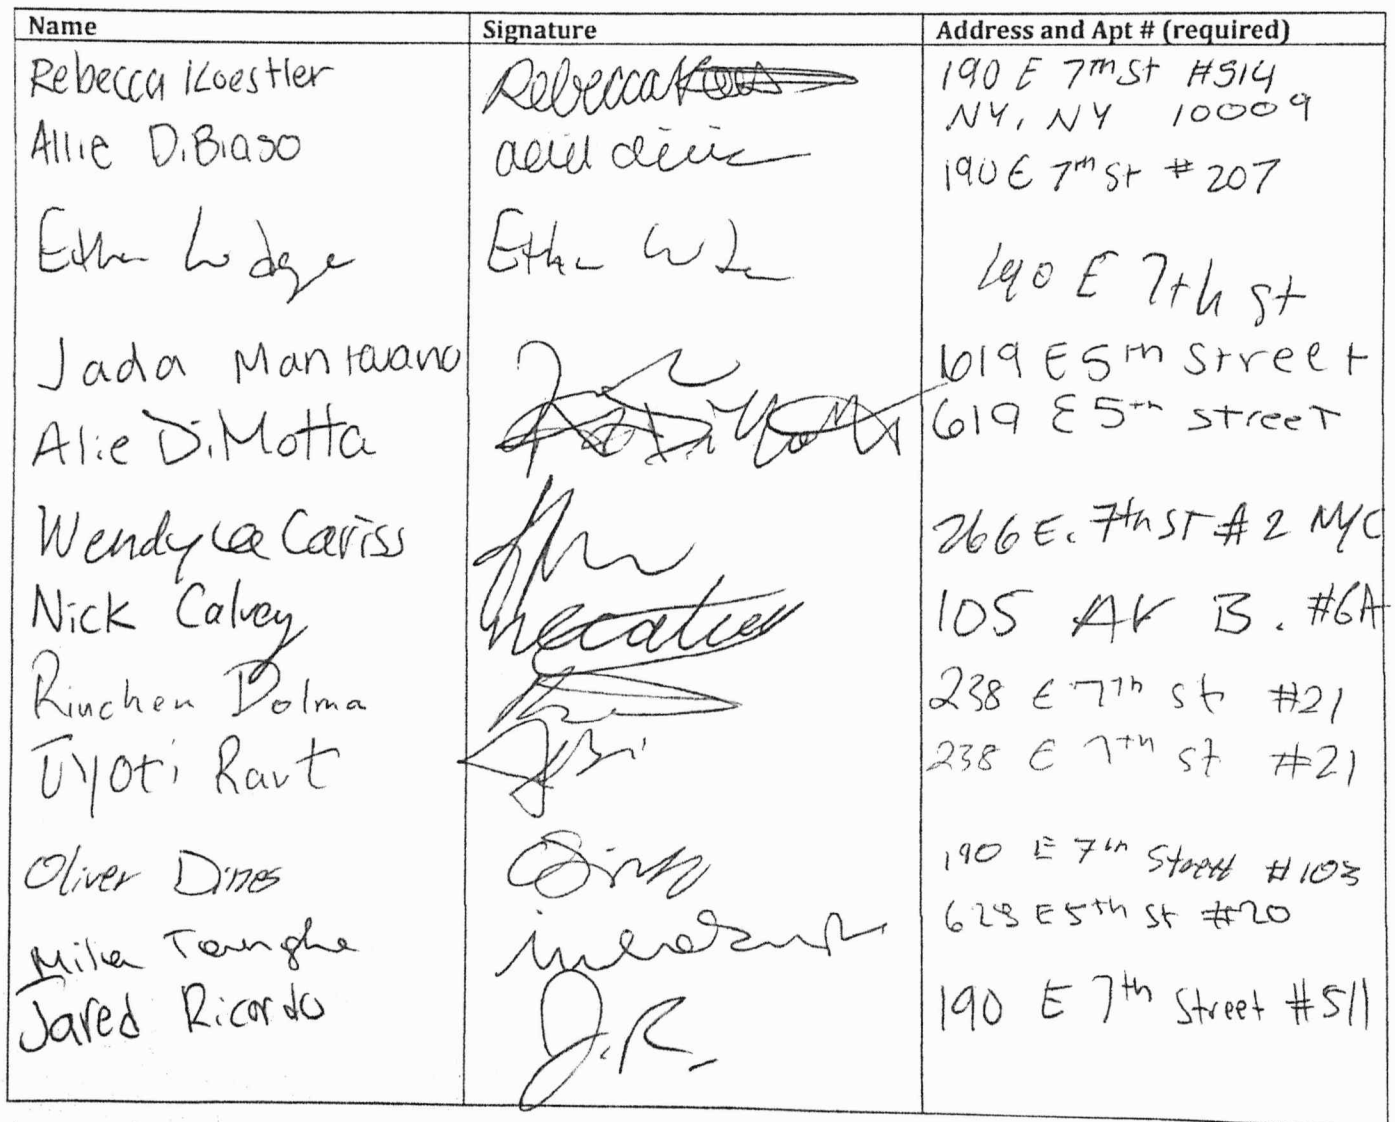 Name Signature Address and Apt # (required)
Rebecca Koestler Rebecca 190 E 7th St #514
NY, NY 10009
Allie DiBiaso 190 E 7th St #207
Ethan Lodge Ethan 190 E 7th St
Jada 619 E 5th Street
Alie DiMotta DiMotta 619 E 5th Street
Wendy Lee Cariss 266 E. 7th ST #2 NYC
Nick Calvey 105 AV B. #6A
Rinchen Dolma 238 E 7th St #21
Jyoti Raut 238 E 7th St #21
Oliver Dines 190 E 7th Street #103
628 E 5th St #20
Jared Ricardo J.R. 190 E 7th Street #511